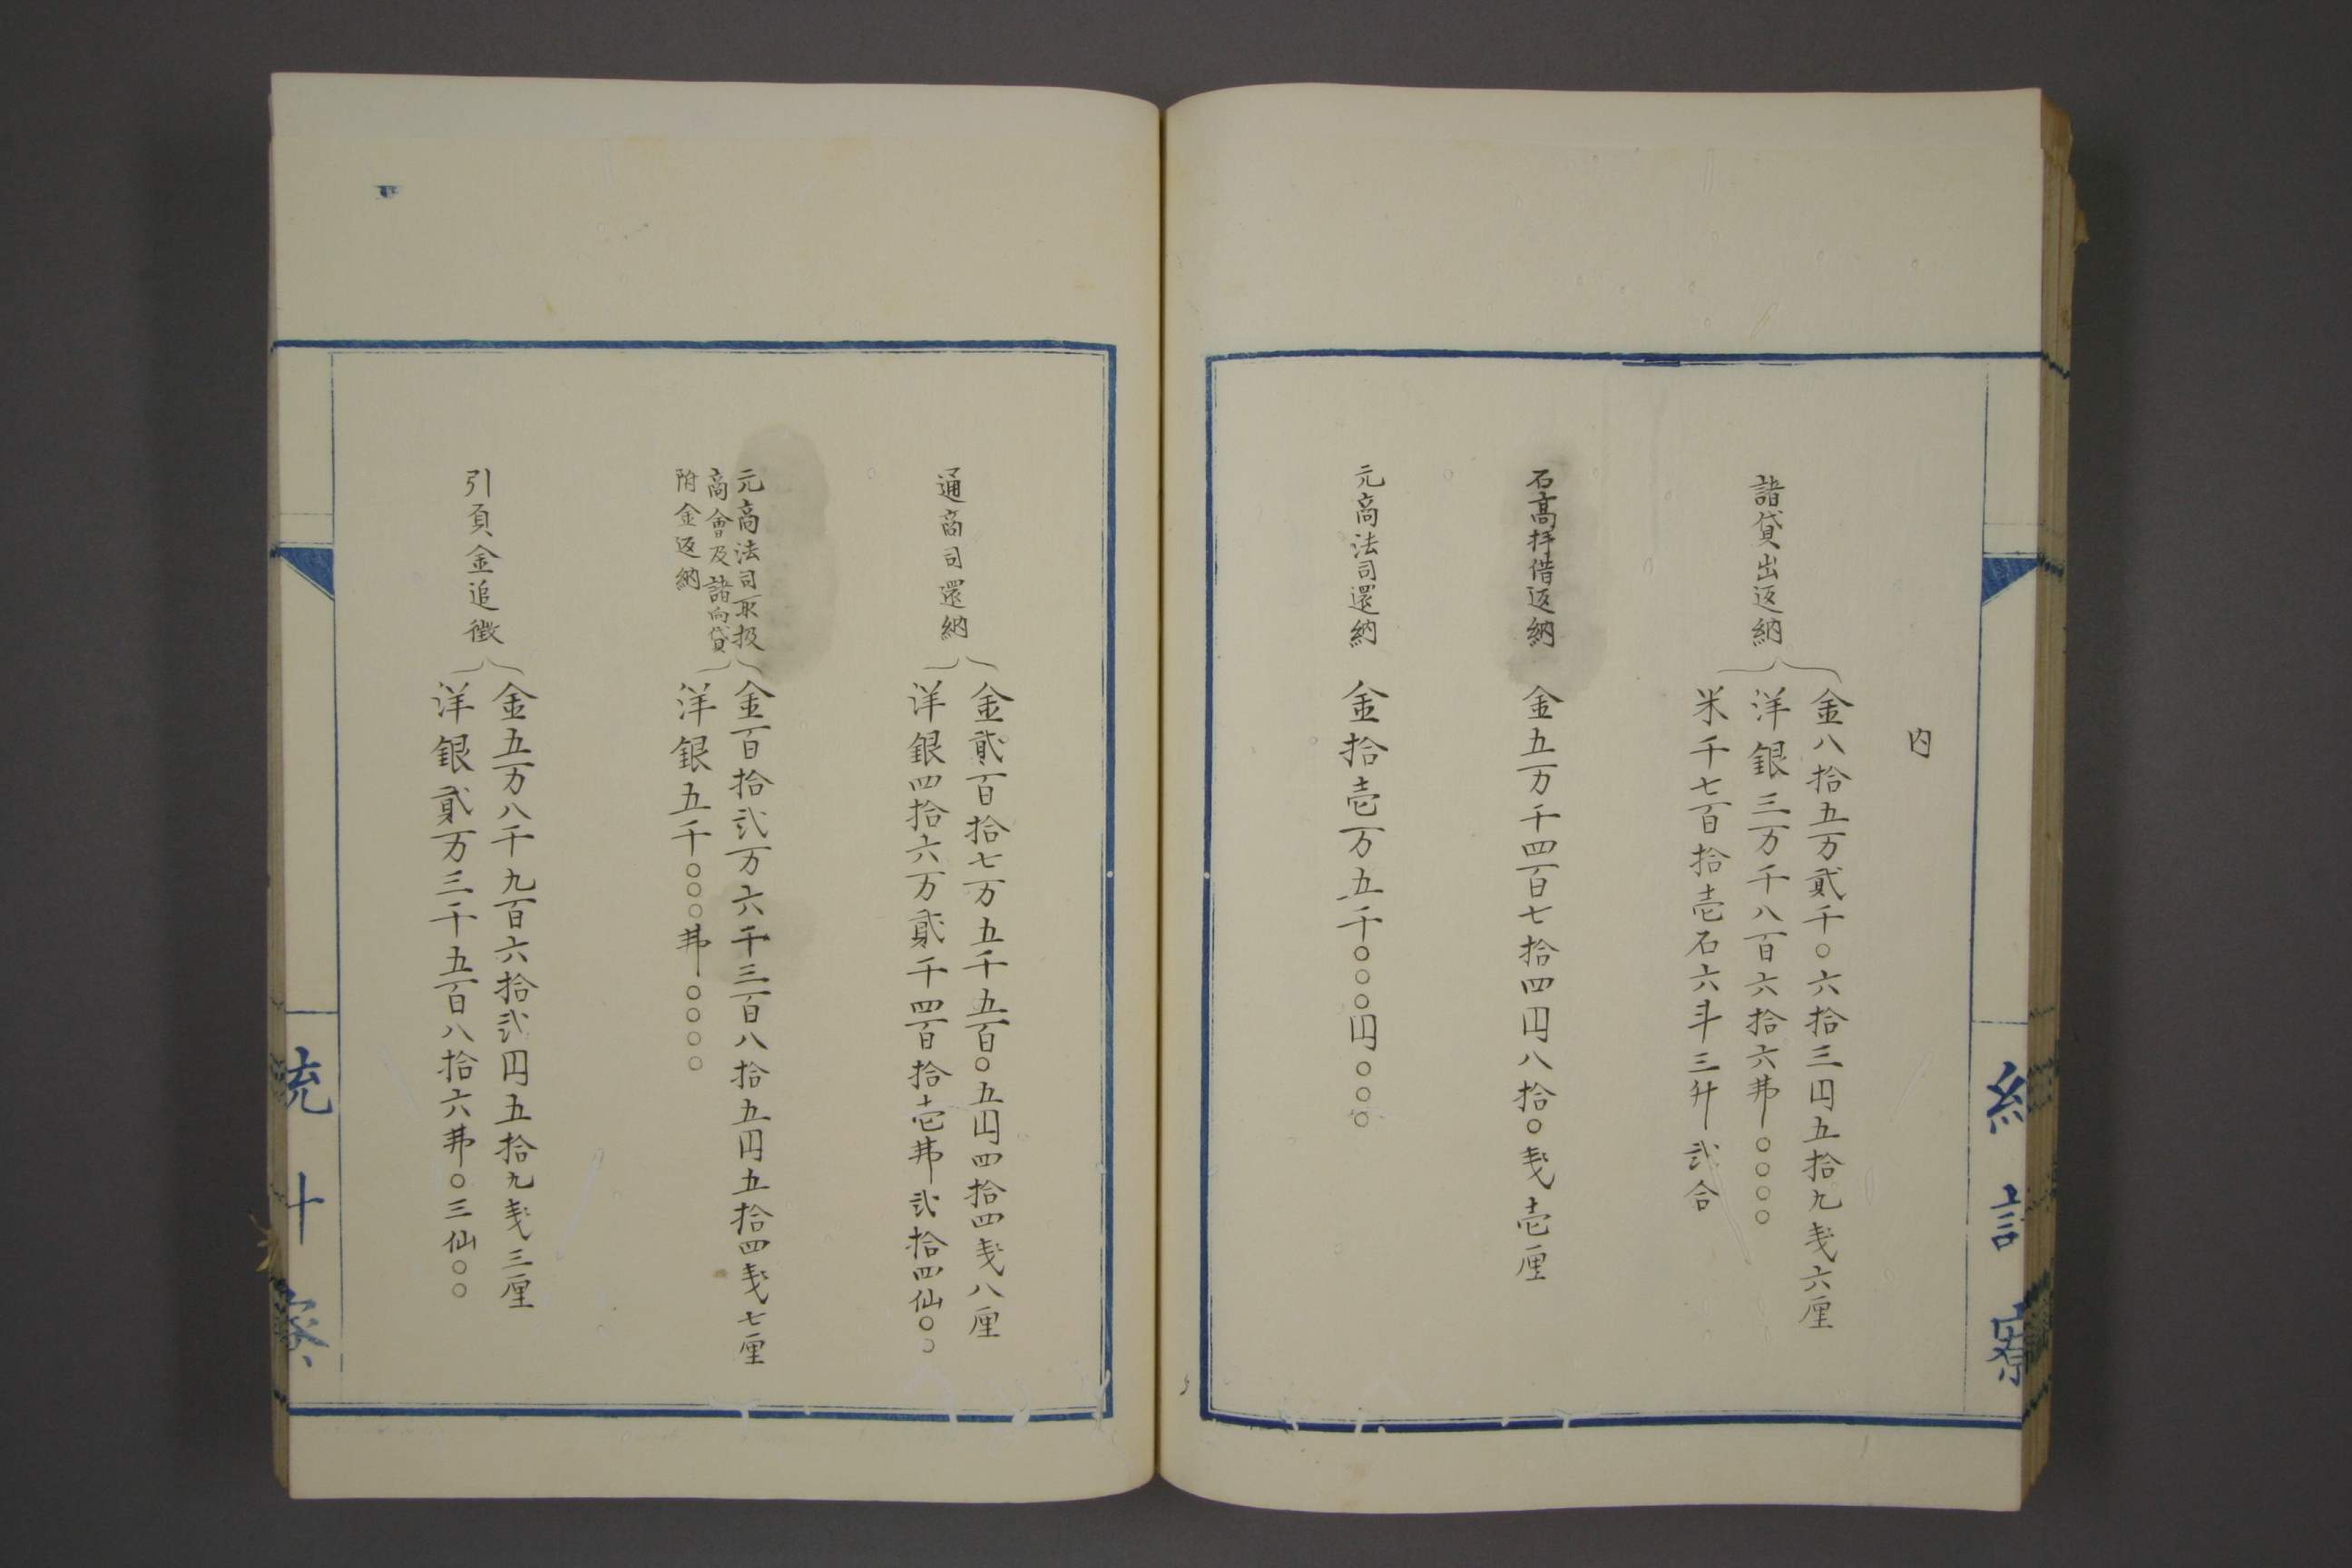 内
諸貸出返納
金八拾五万貳千〇六拾三円五拾九戔六厘
洋銀三万千八百六拾六弗〇〇〇〇
米千七百拾壱石六斗三升弐合
石高拝借返納
金五万千四百七拾四円八拾〇戔壱厘
元商法司還納
金拾壱万五千〇〇〇円〇〇〇
通商司還納
金貳百拾七万五千五百〇五円四拾四戔八厘
洋銀四拾六万貳千四百拾壱弗弐拾四仙〇〇
元商法司取扱
商會及諸向貸
附金返納
金百拾弐万六千三百八拾五円五拾四戔七厘
洋銀五千〇〇〇弗〇〇〇〇
引負金追徴
金五万八千九百六拾弐円五拾九戔三厘
洋銀貳万三千五百八拾六弗〇三仙〇〇